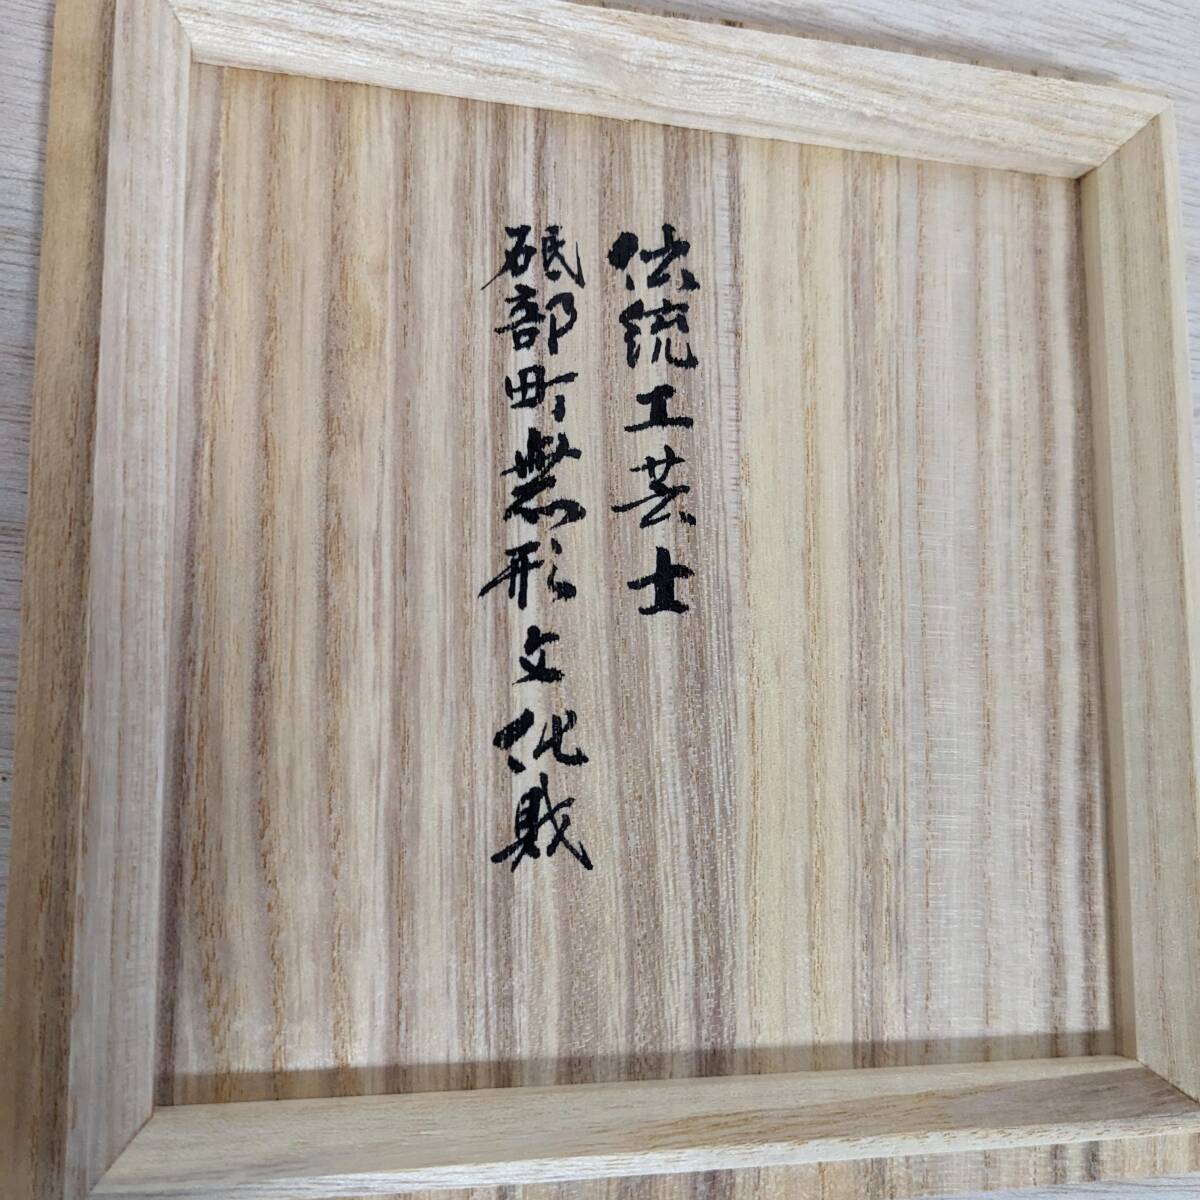 伝統工芸士
砥部町無形文化財